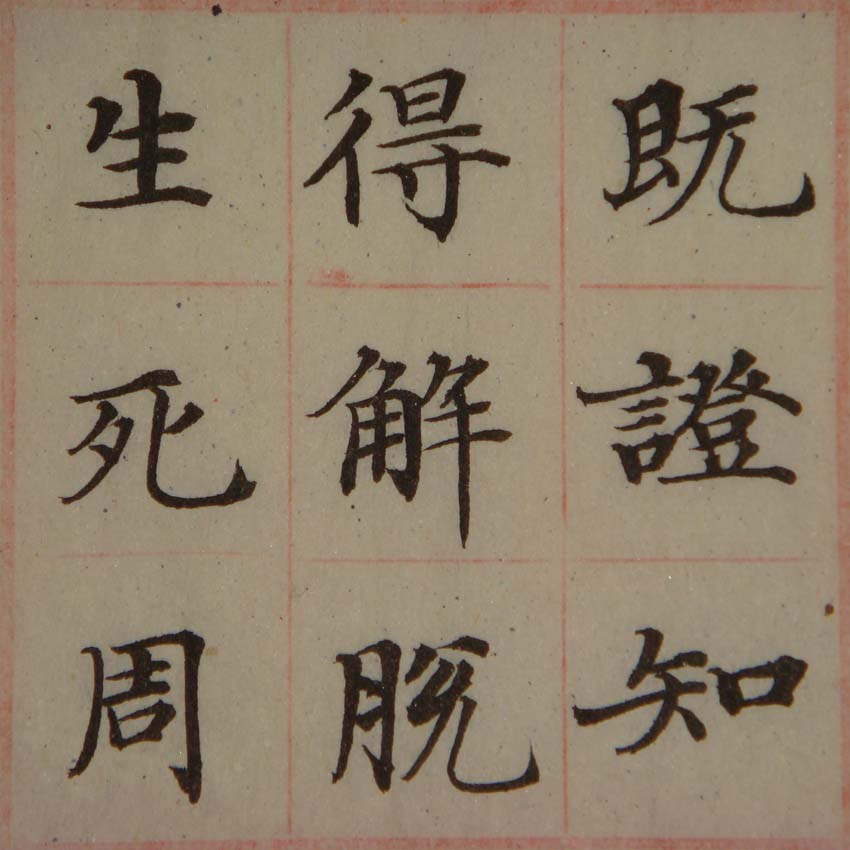 既證知
得解脫
生死周